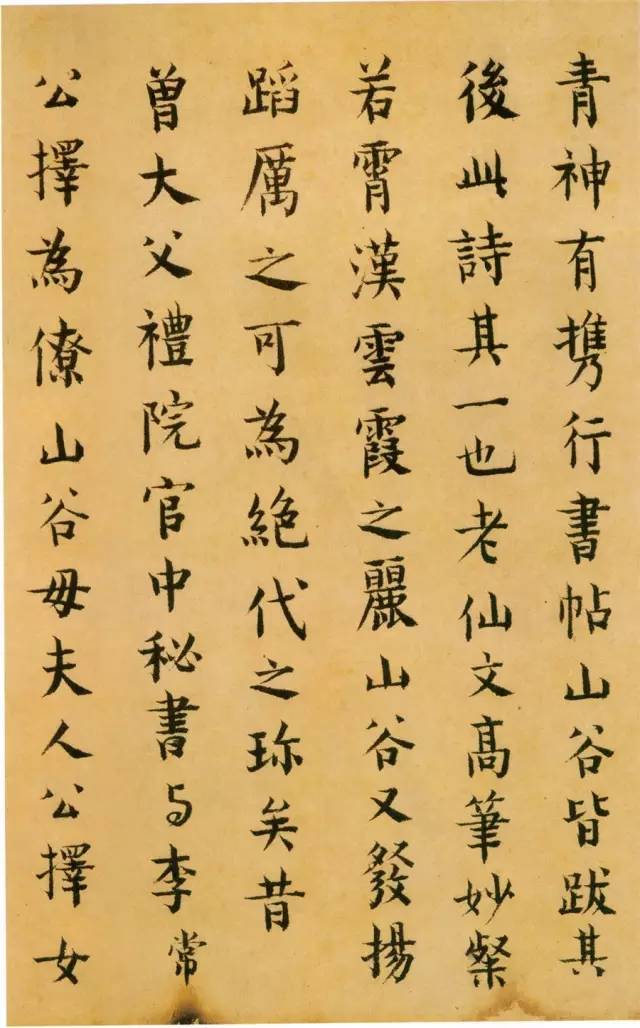 青神有携行書帖山谷皆跋其
後此詩其一也老仙文高筆妙粲
若霄漢雲霞之麗山谷又發揚
蹈厲之可為絕代之珎矣昔
曾大父禮院官中秘書与李常
公擇為僚山谷母夫人公擇女